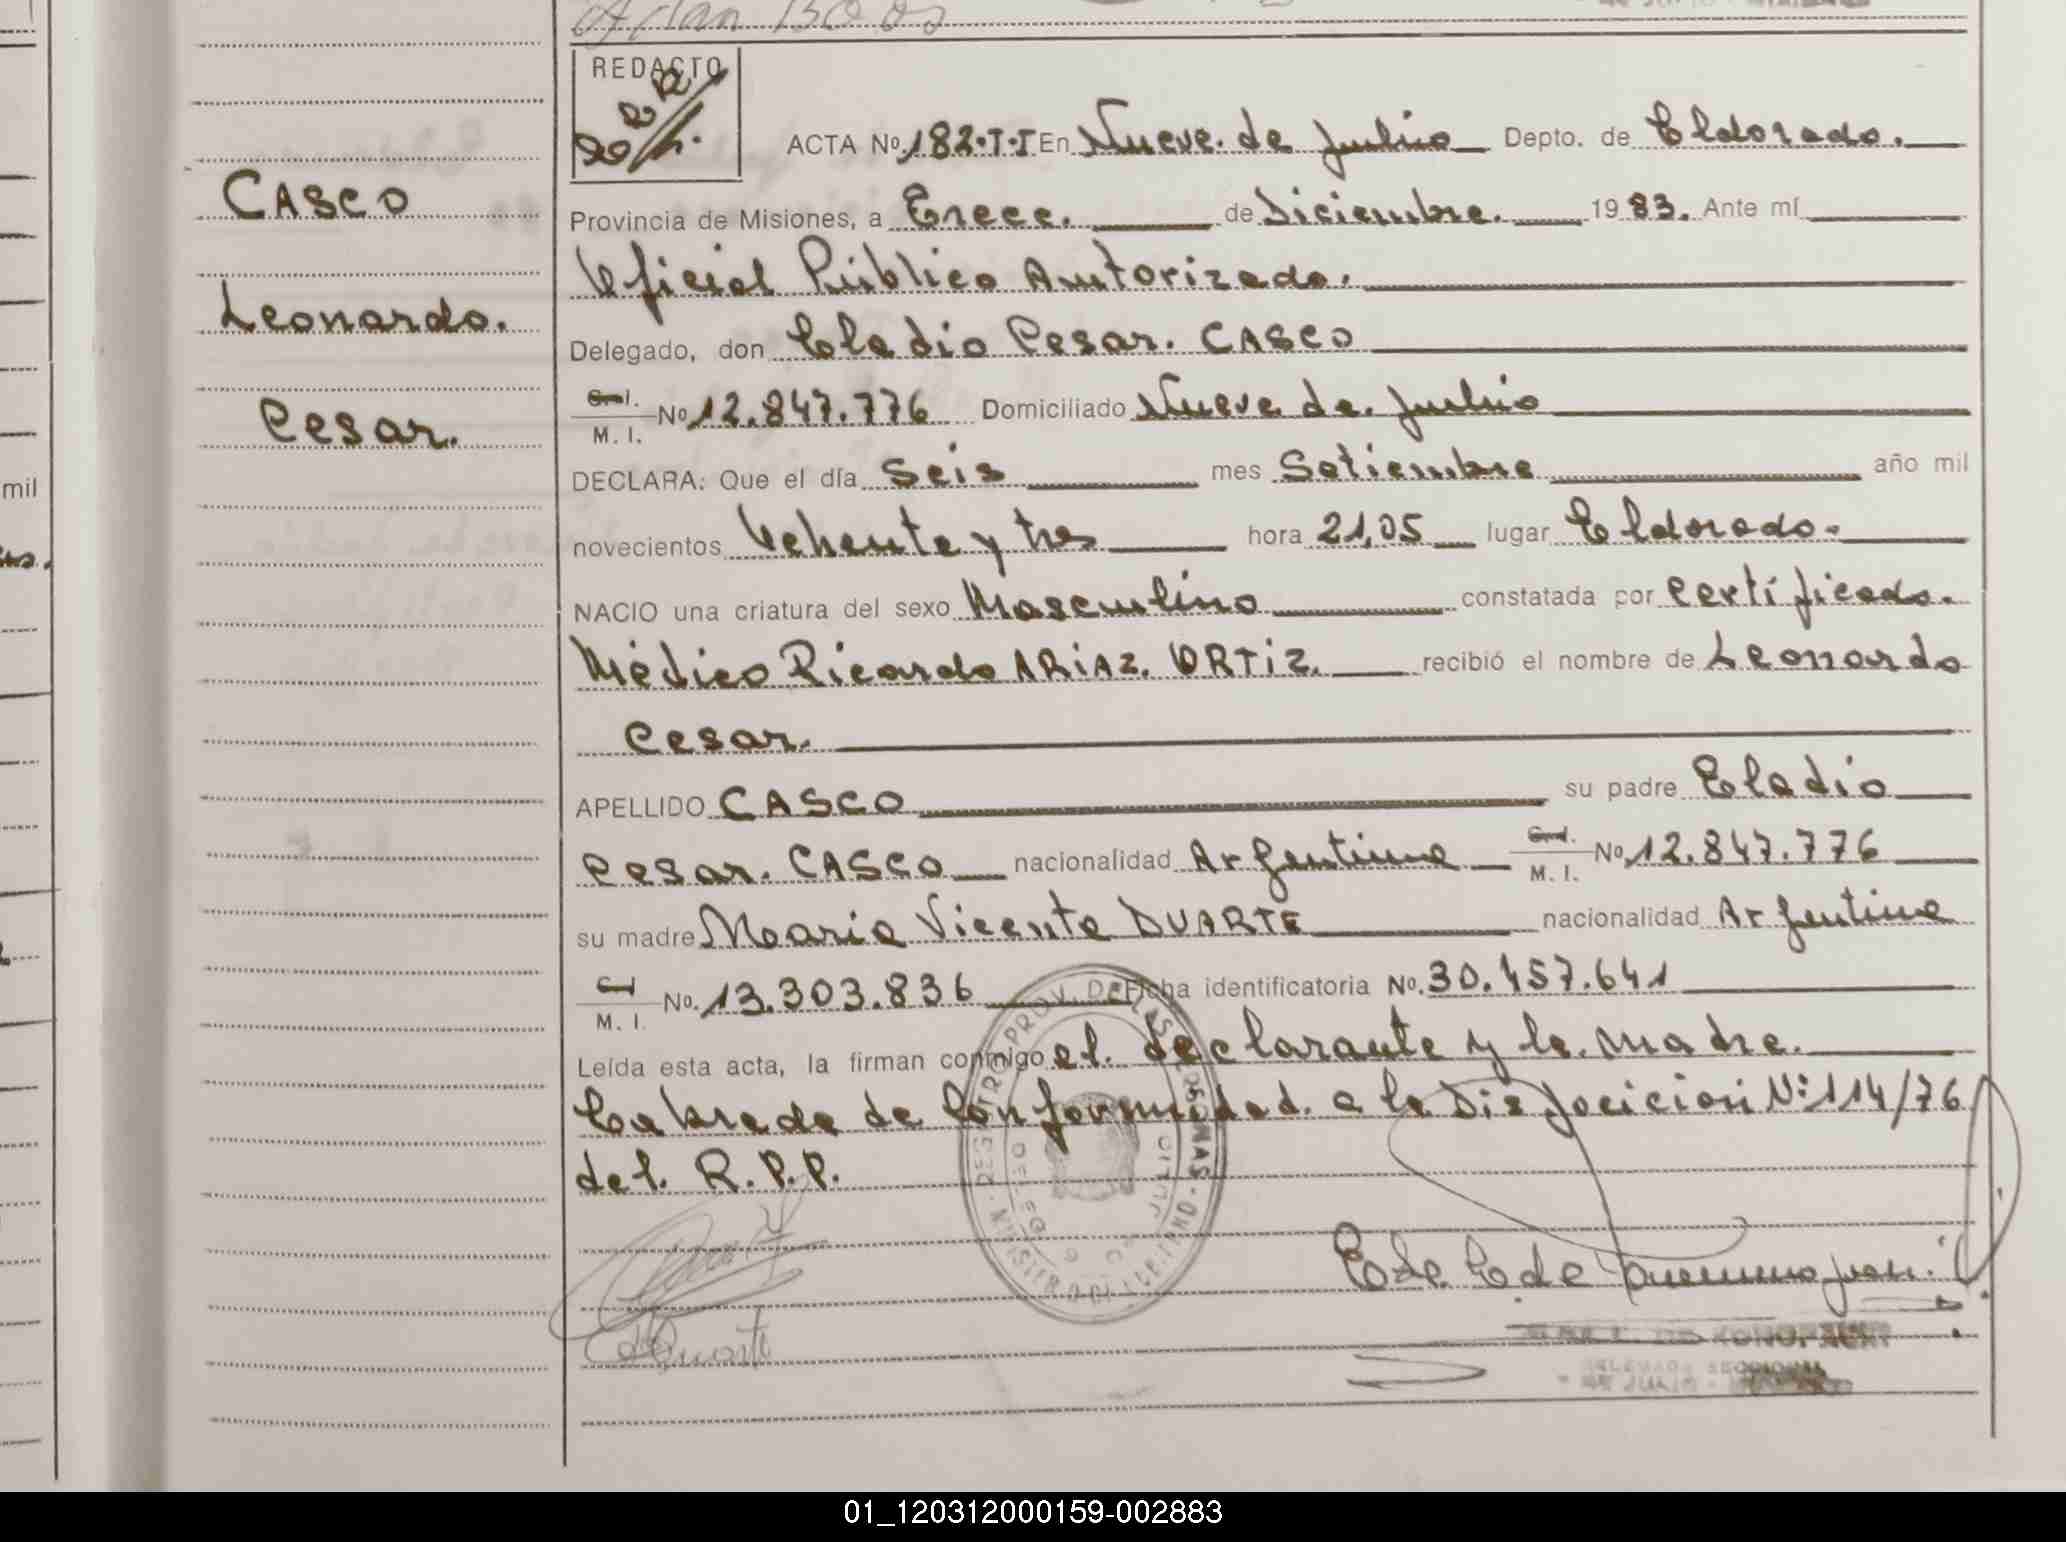 REDACTO
ACTA Nº 182·T·I En Nueve. de Julio Depto. de Eldorado.
CASCO
Provincia de Misiones, a Trece. de Diciembre. 1983. Ante mí
Oficial Público Autorizado.
Leonardo.
Delegado, don Eladio Cesar. CASCO
Cesar.
C.I. M. I. Nº 12.847.776 Domiciliado Nueve de. Julio
DECLARA: Que el día Seis mes Setiembre año mil
novecientos Ochenta y tres hora 21,05 lugar Eldorado.
NACIO una criatura del sexo Masculino constatada por certificado.
Médico Ricardo ARIAZ. ORTIZ. recibió el nombre de Leonardo
Cesar.
APELLIDO CASCO su padre Eladio
Cesar. CASCO nacionalidad Argentina M. I. Nº 12.847.776
su madre Maria Vicenta DUARTE nacionalidad Argentina
M. I. No. 13.303.836 Ficha identificatoria Nº. 30.457.641
Leída esta acta, la firman conmigo el. declarante y la. madre.
Labrada de Conformidad. a la Disposicion Nº 114/76
del. R.P.P.
mil
01_120312000159-002883